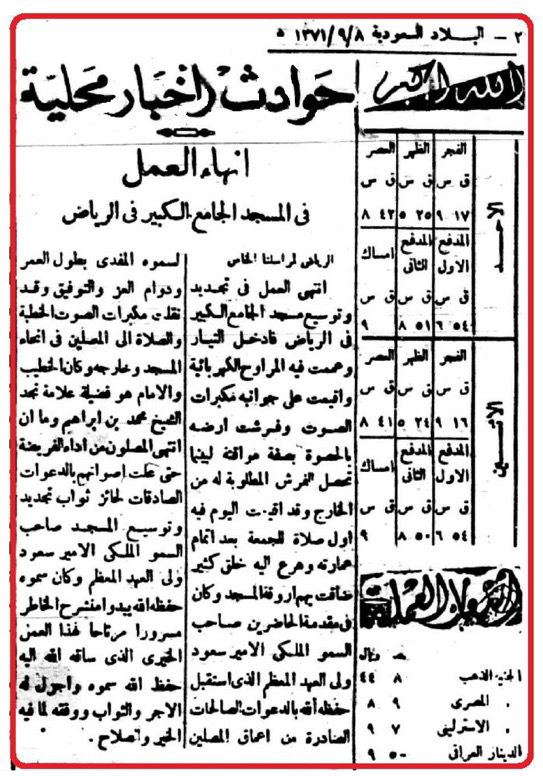 ٢ - البلاد السعودية ١٣٧١/٩/٨ ه
الله اكبر
حوادث واخبار محلية
انهاء العمل
في المسجد الجامع الكبير في الرياض
الرياض لمراسلنا الخاص
انتهى العمل في تجديد
وتوسيع مسجد الجامع الكبير
في الرياض فادخل التيار
وعممت فيه المراوح الكهربائية
واقيمت على جوانبه مكبرات
الصوت وفرشت ارضه
بالحصوة بصفة مؤقتة ليثما
تحصل الفرش المطلوبة له من
الخارج وقد اقيمت اليوم فيه
اول صلاة للجمعة بعد اتمام
عمارته وهرع اليه خلق كثير
ضاقت بهم اروقة المسجد وكان
في مقدمة الحاضرين صاحب
السمو الملكي الامير سعود
ولى العهد المعظم الذى استقبل
حفظه الله بالدعوات الصالحات
الصادرة من اعماق المصلين
لسموه المفدى بطول العمر
ودوام العز والتوفيق وقد
نقلت مكبرات الصوت الخطبة
والصلاة الى المصلين في انحاء
المسجد وخارجه وكان الخطيب
والامام هو فضيلة علامة نجد
الشيخ محمد بن ابراهيم وما ان
انتهى المصلون من اداء الفريضة
حتى علت اصواتهم بالدعوات
الصادقات لحائز ثواب تجديد
وتوسيع المسجد صاحب
السمو الملكى الامير سعود
ولى العهد المعظم وكان سموه
حفظه الله يبدو منشرح الخاطر
مسرورا مرتاحا لهذا العمل
الخيرى الذى ساقه الله اليه
حفظ الله سموه واجزل له
الاجر والثواب ووفقه لما فيه
الخير والصلاح .
الاحد
الفجر الظهر العصر
ق س ق س ق س
١٧ ٩ ٢٥ ٥ ٤٢ ٨
المدفع الاول المدفع الثانى امساك
ق س ق س ق س
٥٤ ٦ ٥١ ٨ ٩
الاثنين
الفجر الظهر العصر
ق س ق س ق س
١٦ ٩ ٢٤ ٥ ٤١ ٨
المدفع الاول المدفع الثانى امساك
ق س ق س ق س
٥٤ ٦ ٥٠ ٨ ٩
اسعار العملات
ريال
الجنيه الذهب ٨ ٤٤
» المصرى ٩ ٨
» الاسترلينى ٧ ٩
الدينار العراقى ٥٠ ٩